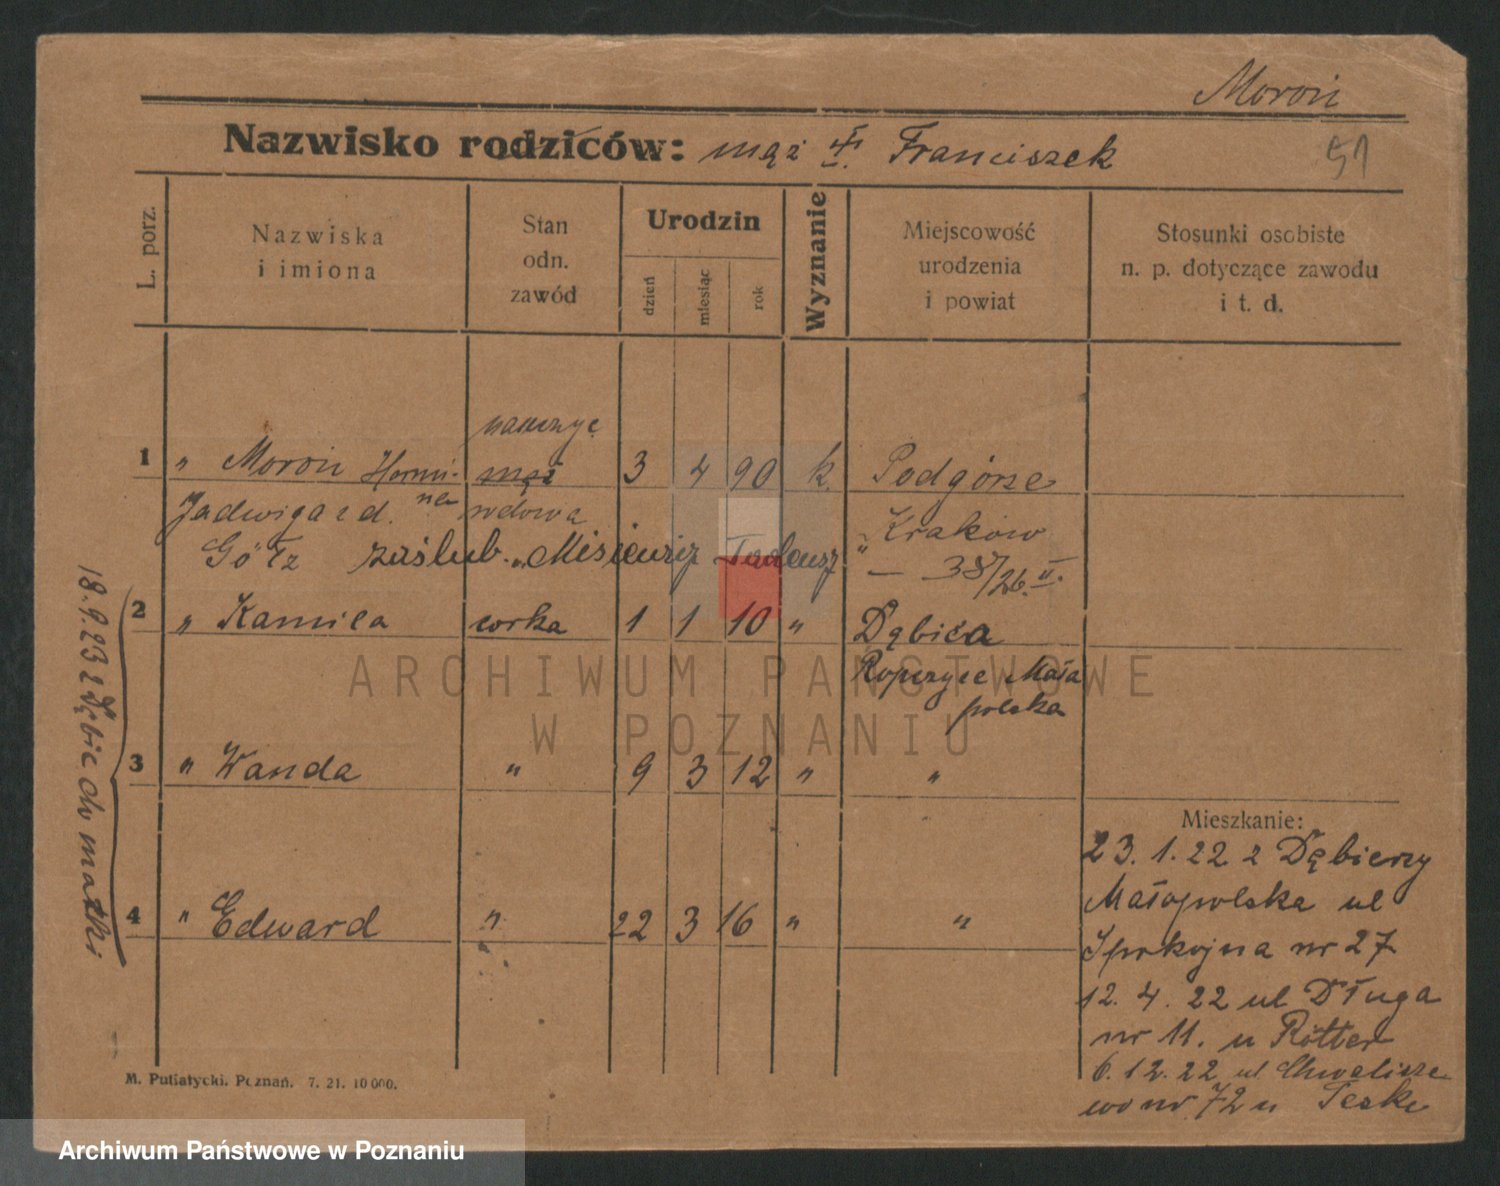 Moroń
Nazwisko rodziców: mąż ✝. Franciszek
51
L. porz.
Nazwiska
i imiona
Stan
odn.
zawód
Urodzin
dzień
miesiąc
rok
Wyznanie
Miejscowość
urodzenia
i powiat
Stosunki osobiste
n. p. dotyczące zawodu
i t. d.
1 " Moroń Hermi- mąż 3 4 90 k. Podgórze
Jadwiga z d. na wdowa Kraków
Götz zaślub. Tadeusz — 38/26. II.
2 " Kamila córka 1 1 10 " Dębica
Ropczyce Mało
polska
3 " Wanda " 9 3 12 " "
4 " Edward " 22 3 16 " "
18.9.23 z Dębic do matki
Mieszkanie:
23.1.22 z Dębicy
Małopolska ul
Spokojna nr 27
12.4.22 ul Długa
nr 11. u Rötter
6.12.22 ul Chwalisze
wo nr 72 u Teske
M. Putiatycki. Poznań. 7. 21. 10 000.
ARCHIWUM PAŃSTWOWE
W POZNANIU
Archiwum Państwowe w Poznaniu